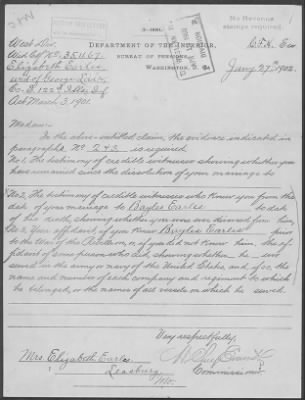 No Revenue
stamps required.
West Div.
DEPARTMENT OF THE INTERIOR,
Wid. Ctf. No. 351167.
BUREAU OF PENSIONS,
Elizabeth Earles
WASHINGTON,
Jany 27th, 1902.
wid of George
Co. D. 122d Ills Inf
Act March 3, 1901.
Madam:
In the above-entitled claim, the evidence indicated in
paragraphs No. 2 & 3 is required
No 1. The testimony of credible witnesses showing whether you
have remained since the dissolution of your marriage to
No 2. The testimony of credible witnesses who knew you from the
date of your marriage to Bayles Earles to date
of his death, showing whether you were divorced from him.
No 3. Your affidavit, if you knew Bayles Earles prior
to the War of the Rebellion, or, if you did not know him, the af-
fidavit of some person who did, showing whether he
served in the army or navy of the United States, and if so, the
name and number of each company and regiment to which
he belonged, or the names of all vessels on which he served.
Very respectfully,
Commissioner.
Mrs. Elizabeth Earles
Leasburg
Mo.